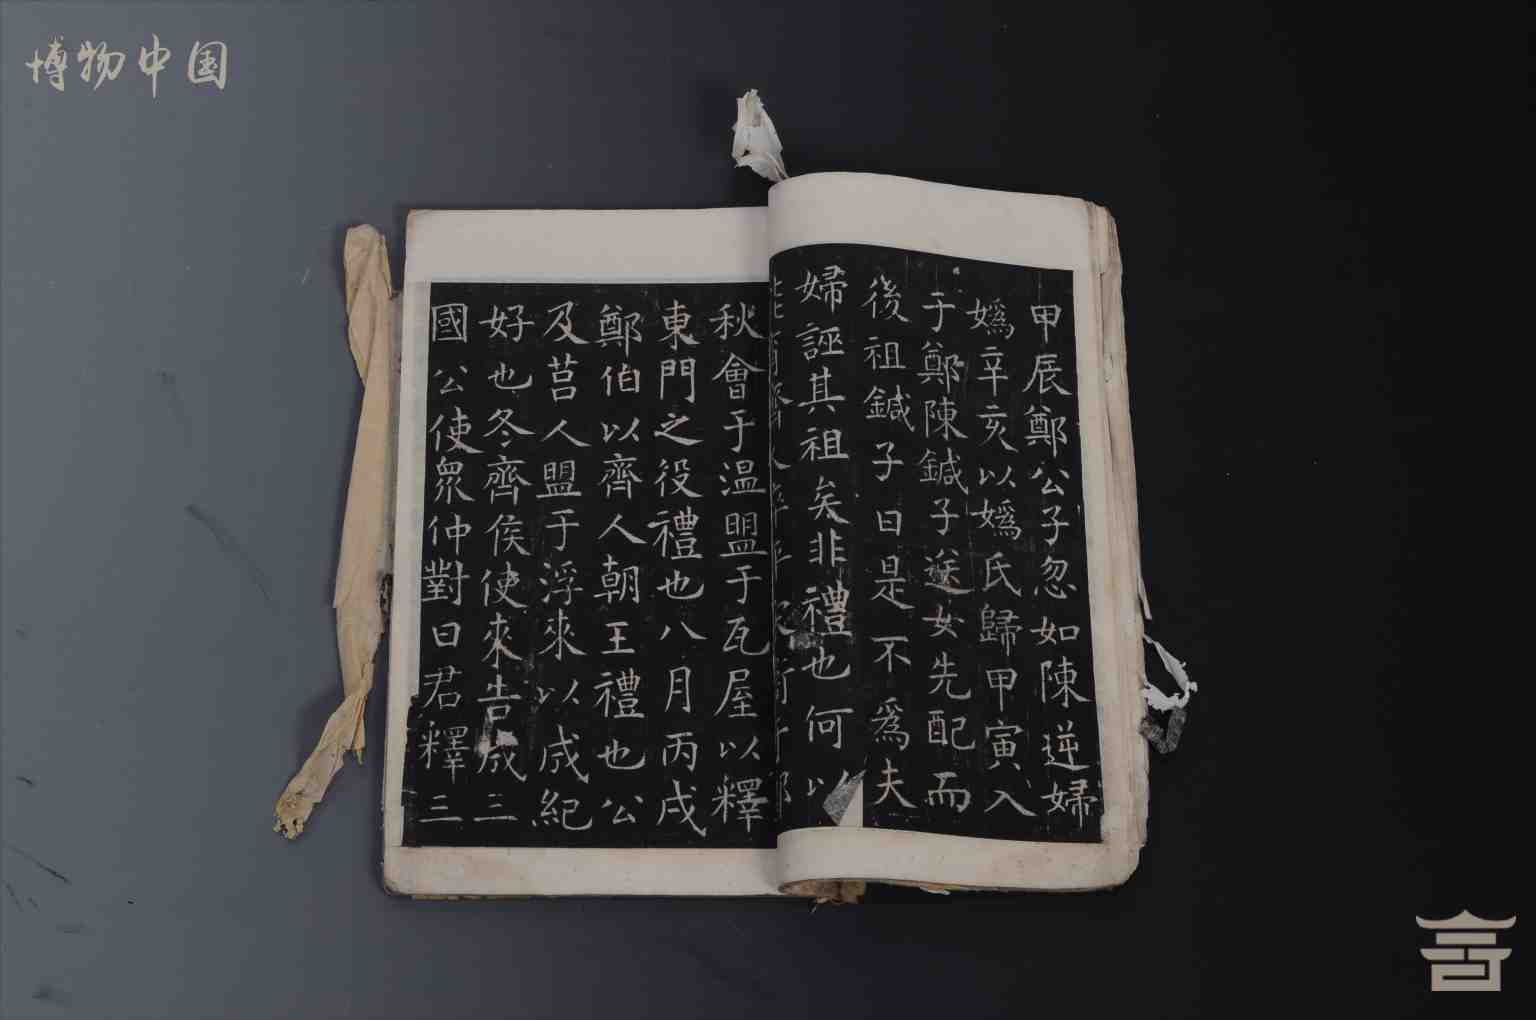 博物中国
甲辰鄭公子忽如陳逆婦
嬀辛亥以嬀氏歸甲寅入
于鄭陳鍼子送女先配而
後祖鍼子曰是不爲夫
婦誣其祖矣非禮也何以
秋會于温盟于瓦屋以釋
東門之役禮也八月丙戌
鄭伯以齊人朝王禮也公
及莒人盟于浮來以成紀
好也冬齊侯使來告成三
國公使衆仲對曰君釋三